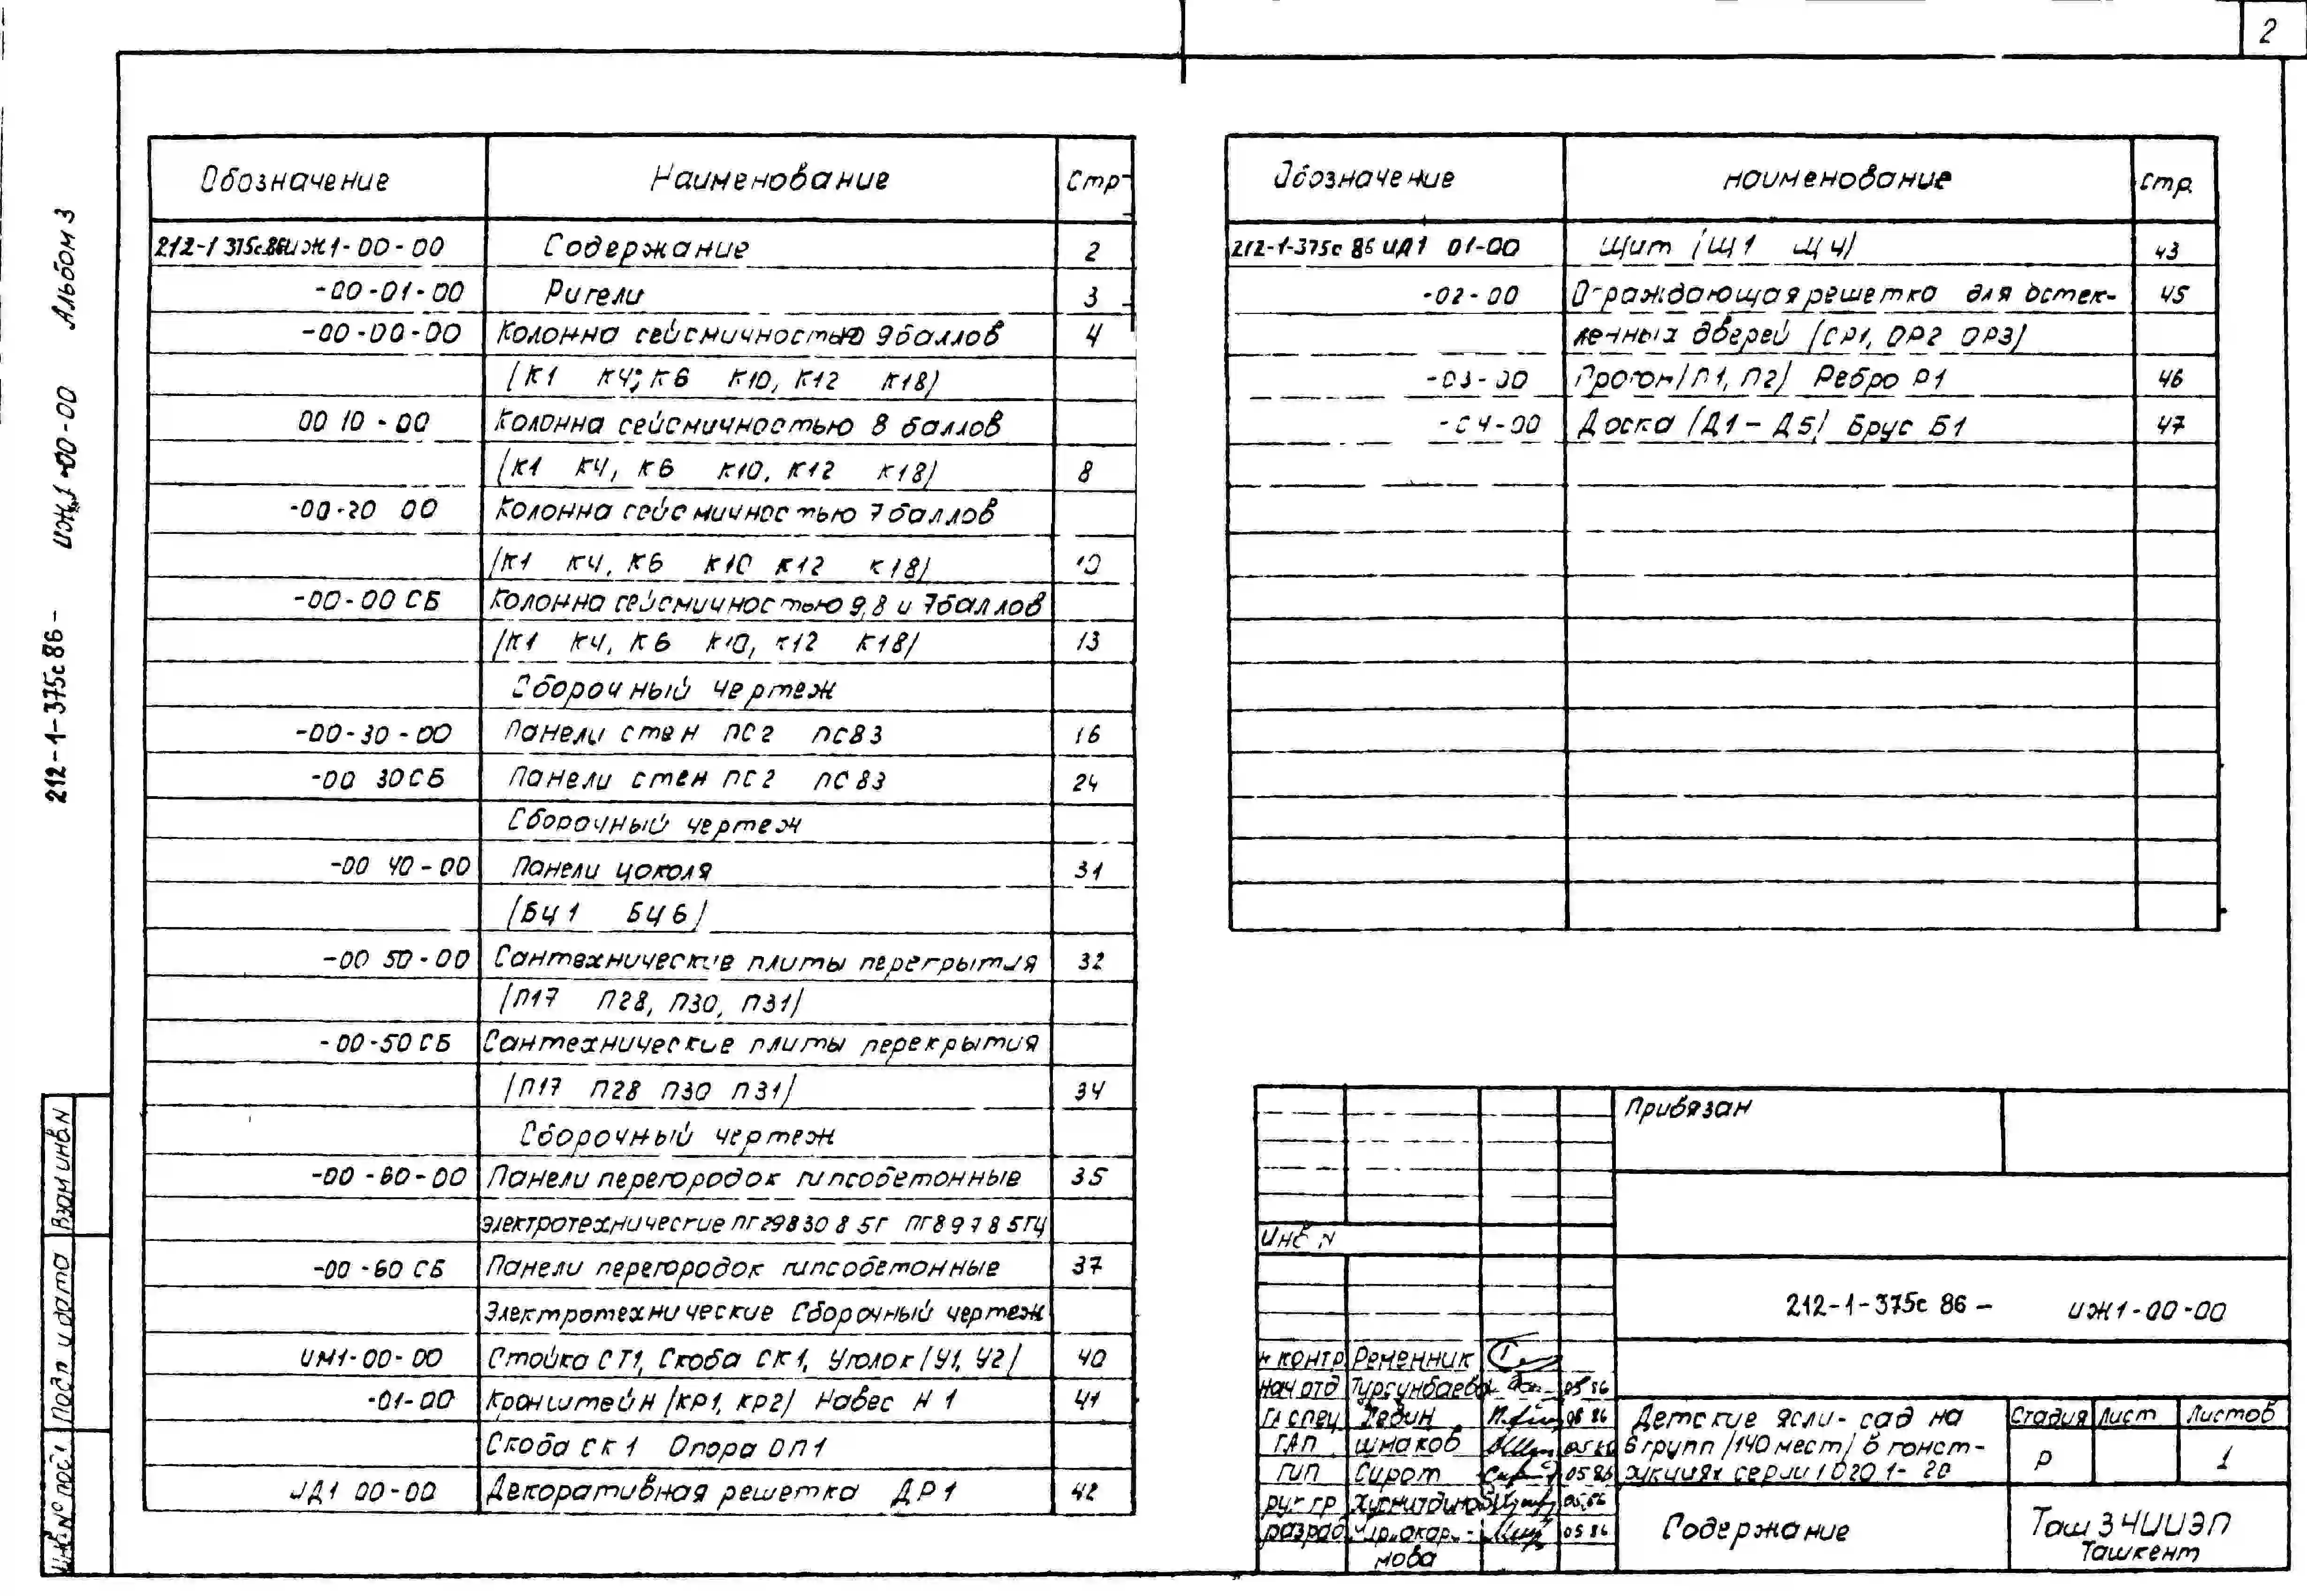 2
212-1-375с86- ИЖ1-00-00 Альбом 3
Обозначение Наименование Стр
212-1 375с.86ИЖ1-00-00 Содержание 2
-00-01-00 Ригели 3
-00-00-00 Колонна сейсмичностью 9 баллов 4
(К1 К4; К6 К10, К12 К18)
00 10-00 Колонна сейсмичностью 8 баллов
(К1 К4, К6 К10, К12 К18) 8
-00-20 00 Колонна сейсмичностью 7 баллов
(К1 К4, К6 К10 К12 К18) 10
-00-00 СБ Колонна сейсмичностью 9,8 и 7 баллов
(К1 К4, К6 К10, К12 К18) 13
Сборочный чертеж
-00-30-00 Панели стен ПС2 ПС83 16
-00 30СБ Панели стен ПС2 ПС83 24
Сборочный чертеж
-00 40-00 Панели цоколя 31
(БЦ1 БЦ6)
-00 50-00 Сантехнические плиты перекрытия 32
(П17 П28, П30, П31)
-00-50 СБ Сантехнические плиты перекрытия
(П17 П28 П30 П31) 34
Сборочный чертеж
-00-60-00 Панели перегородок гипсобетонные 35
электротехнические ПГ29830 8 5Г ПГ8978 5ГЦ
-00-60 СБ Панели перегородок гипсобетонные 37
Электротехнические Сборочный чертеж
ИМ1-00-00 Стойка СТ1, Скоба СК1, Уголок (У1, У2) 40
-01-00 Кронштейн (КР1, КР2) Навес Н1 41
Скоба СК1 Опора ОП1
ИД1 00-00 Декоративная решетка ДР1 42
Обозначение наименование стр.
212-1-375с 86 ИД1 01-00 Щит (Щ1 Щ4) 43
-02-00 Ограждающая решетка для остек- 45
ленных дверей (ОР1, ОР2 ОР3)
-03-00 Прогон (П1, П2) Ребро Р1 46
-04-00 Доска (Д1-Д5) Брус Б1 47
Привязан
Инв N
212-1-375с 86- ИЖ1-00-00
н контр Ременник
нач отд Турсунбаева 05 86
гл спец Дедин 05 86
ГАП Шмаков 05 86
ГИП Сирот 05 86
рук гр 05.86
разраб 05 86
мова
Детские ясли-сад на
6 групп (140 мест) в конст-
рукциях серии 1 020 1-20
Стадия Лист Листов
Р 1
Содержание
Таш З НИИЭП
Ташкент
Взам инв. N
Подп и дата
Инв № подл